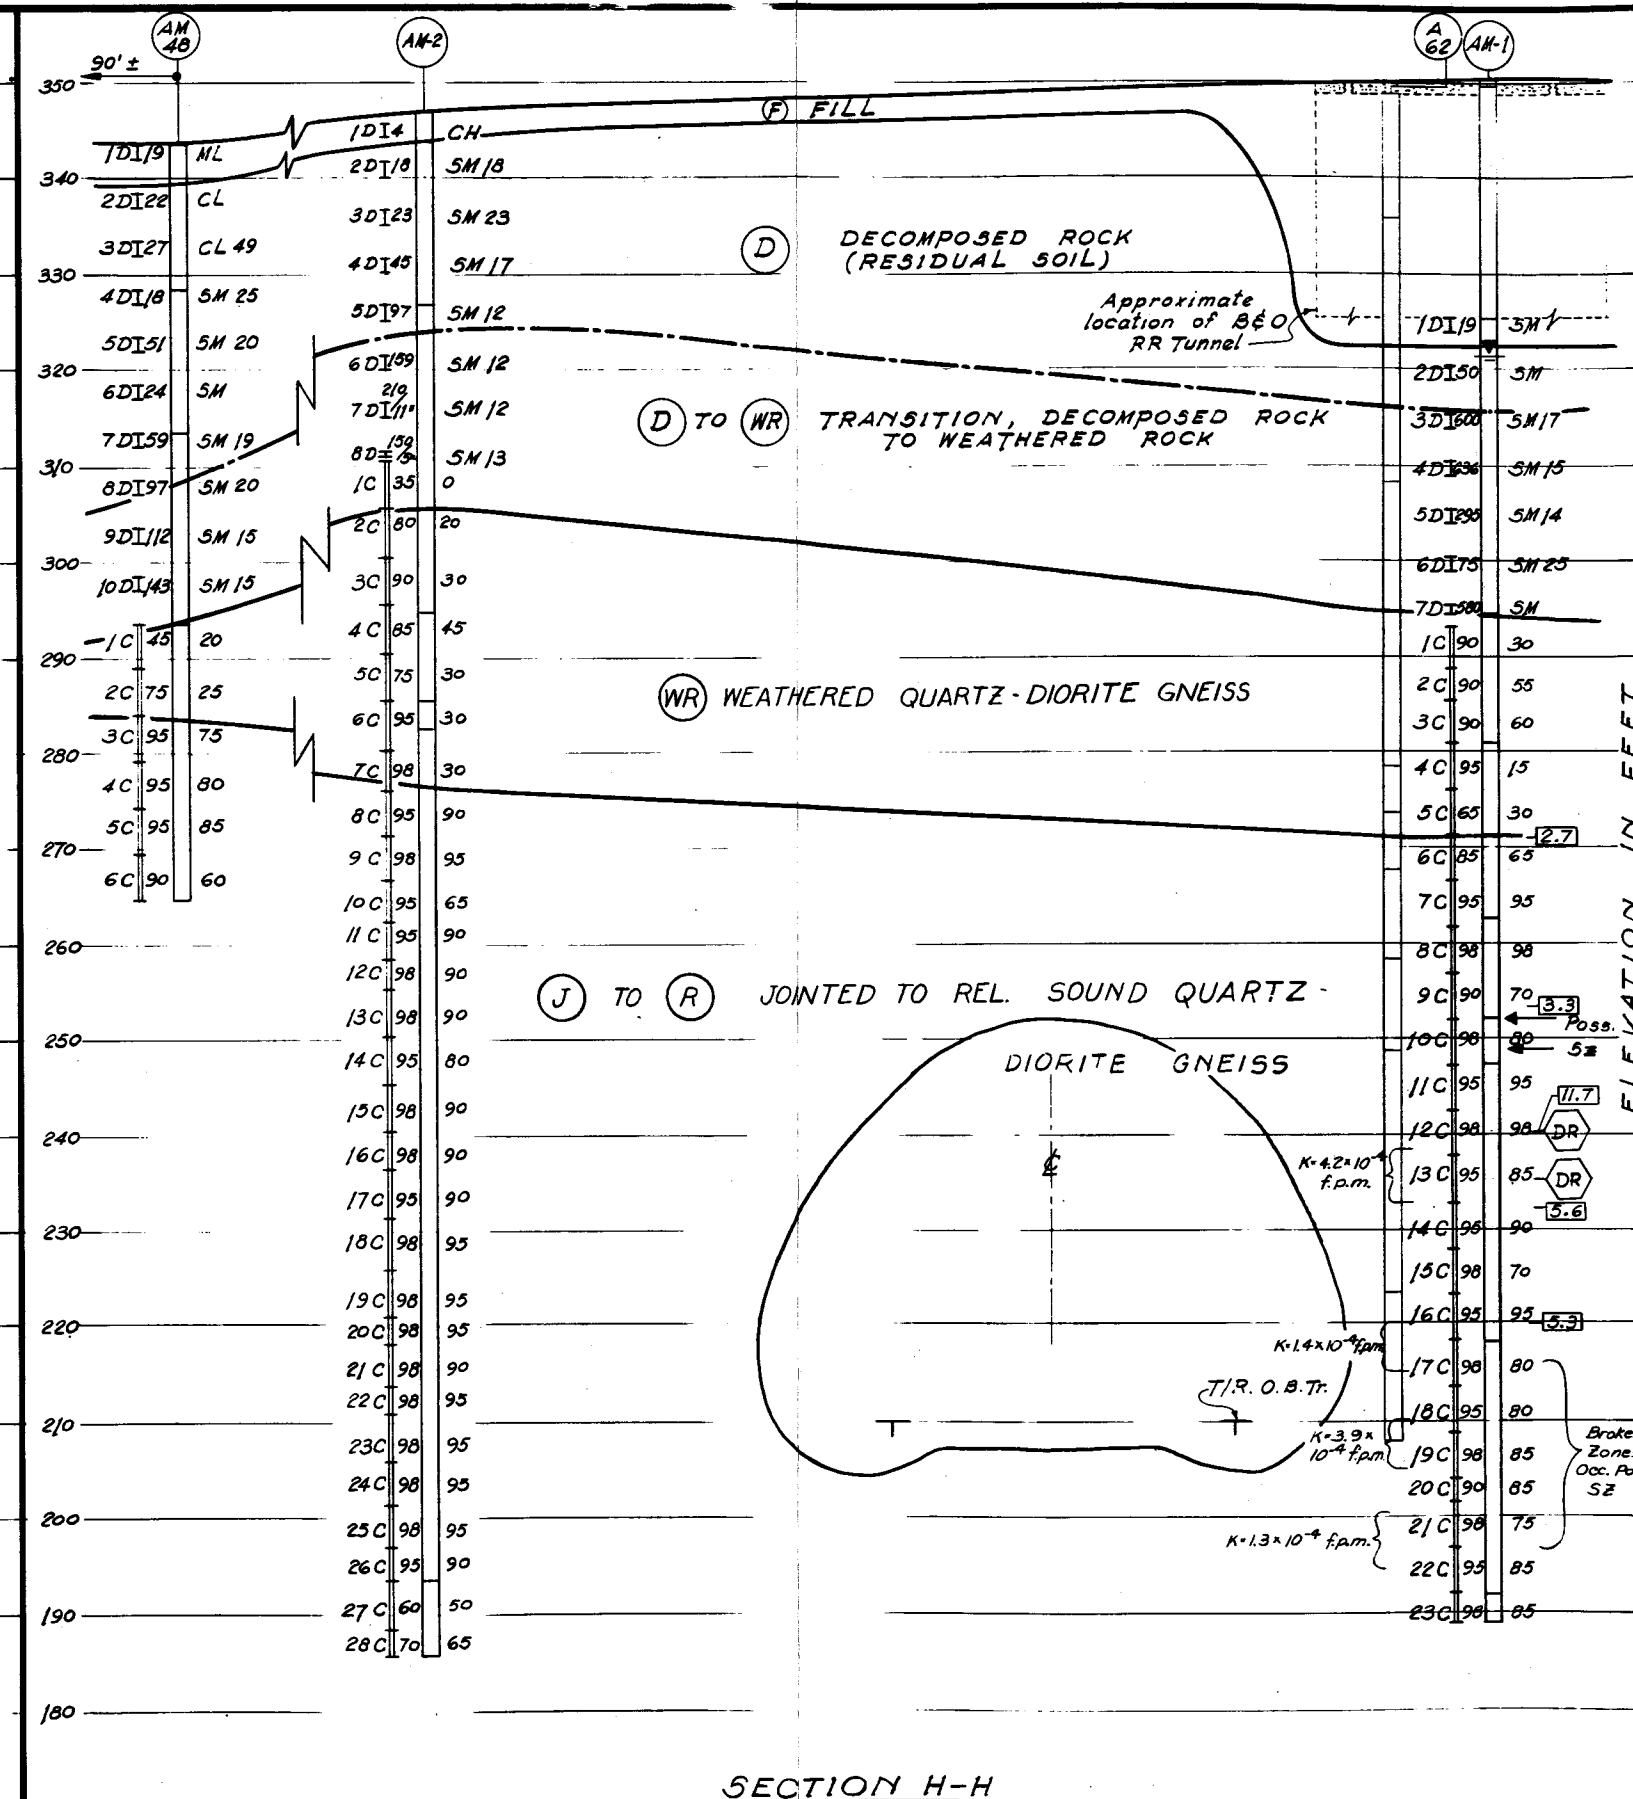 AM 48
AM-2
A 62
AM-1
90' ±
350
340
330
320
310
300
290
280
270
260
250
240
230
220
210
200
190
180
1D 19 ML
2D 22 CL
3D 27 CL 49
4D 18 SM 25
5D 51 SM 20
6D 24 SM
7D 59 SM 19
8D 97 SM 20
9D 112 SM 15
10D 143 SM 15
1C 45 20
2C 75 25
3C 95 75
4C 95 80
5C 95 85
6C 90 60
1D 4 CH
2D 18 SM 18
3D 23 SM 23
4D 45 SM 17
5D 97 SM 12
6D 159 SM 12
7D 210/11" SM 12
8D 150/5 SM 13
1C 35 0
2C 80 20
3C 90 30
4C 85 45
5C 75 30
6C 95 30
7C 98 30
8C 95 90
9C 98 95
10C 95 65
11C 95 90
12C 98 90
13C 98 90
14C 95 80
15C 98 90
16C 98 90
17C 95 90
18C 98 95
19C 98 95
20C 98 95
21C 98 90
22C 98 95
23C 98 95
24C 98 95
25C 98 95
26C 95 90
27C 60 50
28C 70 65
F FILL
D DECOMPOSED ROCK
(RESIDUAL SOIL)
Approximate
location of B&O
RR Tunnel
D TO WR TRANSITION, DECOMPOSED ROCK
TO WEATHERED ROCK
WR WEATHERED QUARTZ-DIORITE GNEISS
J TO R JOINTED TO REL. SOUND QUARTZ-
DIORITE GNEISS
℄
T/R. O.B.Tr.
K=4.2×10⁻⁴
f.p.m.
K=1.4×10⁻⁴ f.p.m.
K=3.9×
10⁻⁴ f.p.m.
K=1.3×10⁻⁴ f.p.m.
1D 19 SM
2D 50 SM
3D 600 SM 17
4D 636 SM 15
5D 295 SM 14
6D 75 SM 25
7D 580 SM
1C 90 30
2C 90 55
3C 90 60
4C 95 15
5C 65 30
2.7
6C 85 65
7C 95 95
8C 98 98
9C 90 70
3.3
Poss.
SZ
10C 98 80
11C 95 95
11.7
12C 98 98 DR
13C 95 85 DR
5.6
14C 95 90
15C 98 70
16C 95 95 5.3
17C 98 80
18C 95 80
19C 98 85
20C 90 85
21C 98 75
22C 95 85
23C 98 85
Broke
Zone
Occ. Po
SZ
ELEVATION IN FEET
SECTION H-H